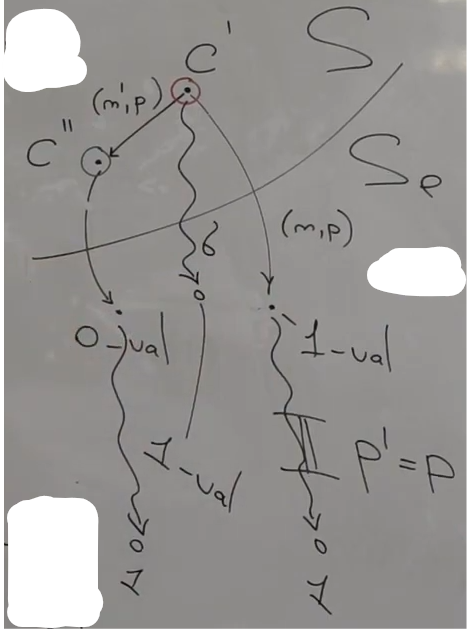 C'
S
(m', p)
C''
S_e
(m, p)
6
0-val
1-val
1-val
p' = p
1
1